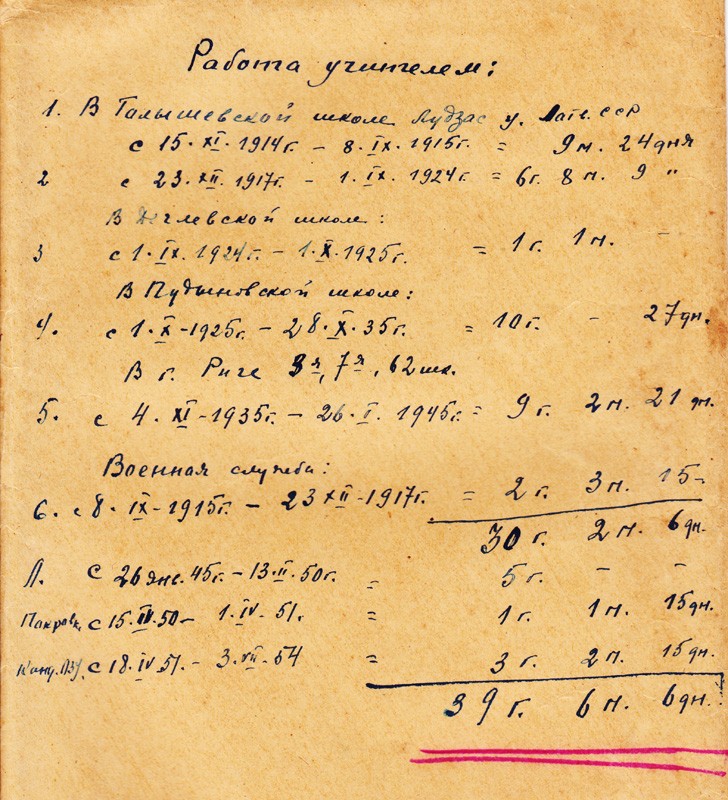 Работа учителем:
1. В Голышевской школе Лудзас у. Латв. ССР
с 15. XI. 1914г. – 8. IX. 1915г. = 9 м. 24 дня
2 с 23. XII. 1917г. – 1. IX. 1924г. = 6г. 8 м. 9 "
В школе:
3 с 1. IX. 1924г. – 1. X. 1925г. = 1г. 1м. –
В Пудиновской школе:
4. с 1. X - 1925г. – 28. X. 35г. = 10г. – 27 дн.
В г. Риге 3я, 7я, 62 шк.
5. с 4. XI - 1935г. – 26. I. 1945г. = 9 г. 2 м. 21 дн.
Военная служба:
6. с 8. IX - 1915г. – 23 XII - 1917г. = 2 г. 3 м. 15 -
30 г. 2 м. 6 дн.
Л. с 26 янв. 45г. – 13. II. 50г. = 5 г. – –
Покровк. с 15. IV. 50 – 1. IV - 51. = 1 г. 1 м. 15 дн.
с 18. IV. 51. – 3. VII. 54 = 3 г. 2 м. 15 дн.
39 г. 6 м. 6 дн.